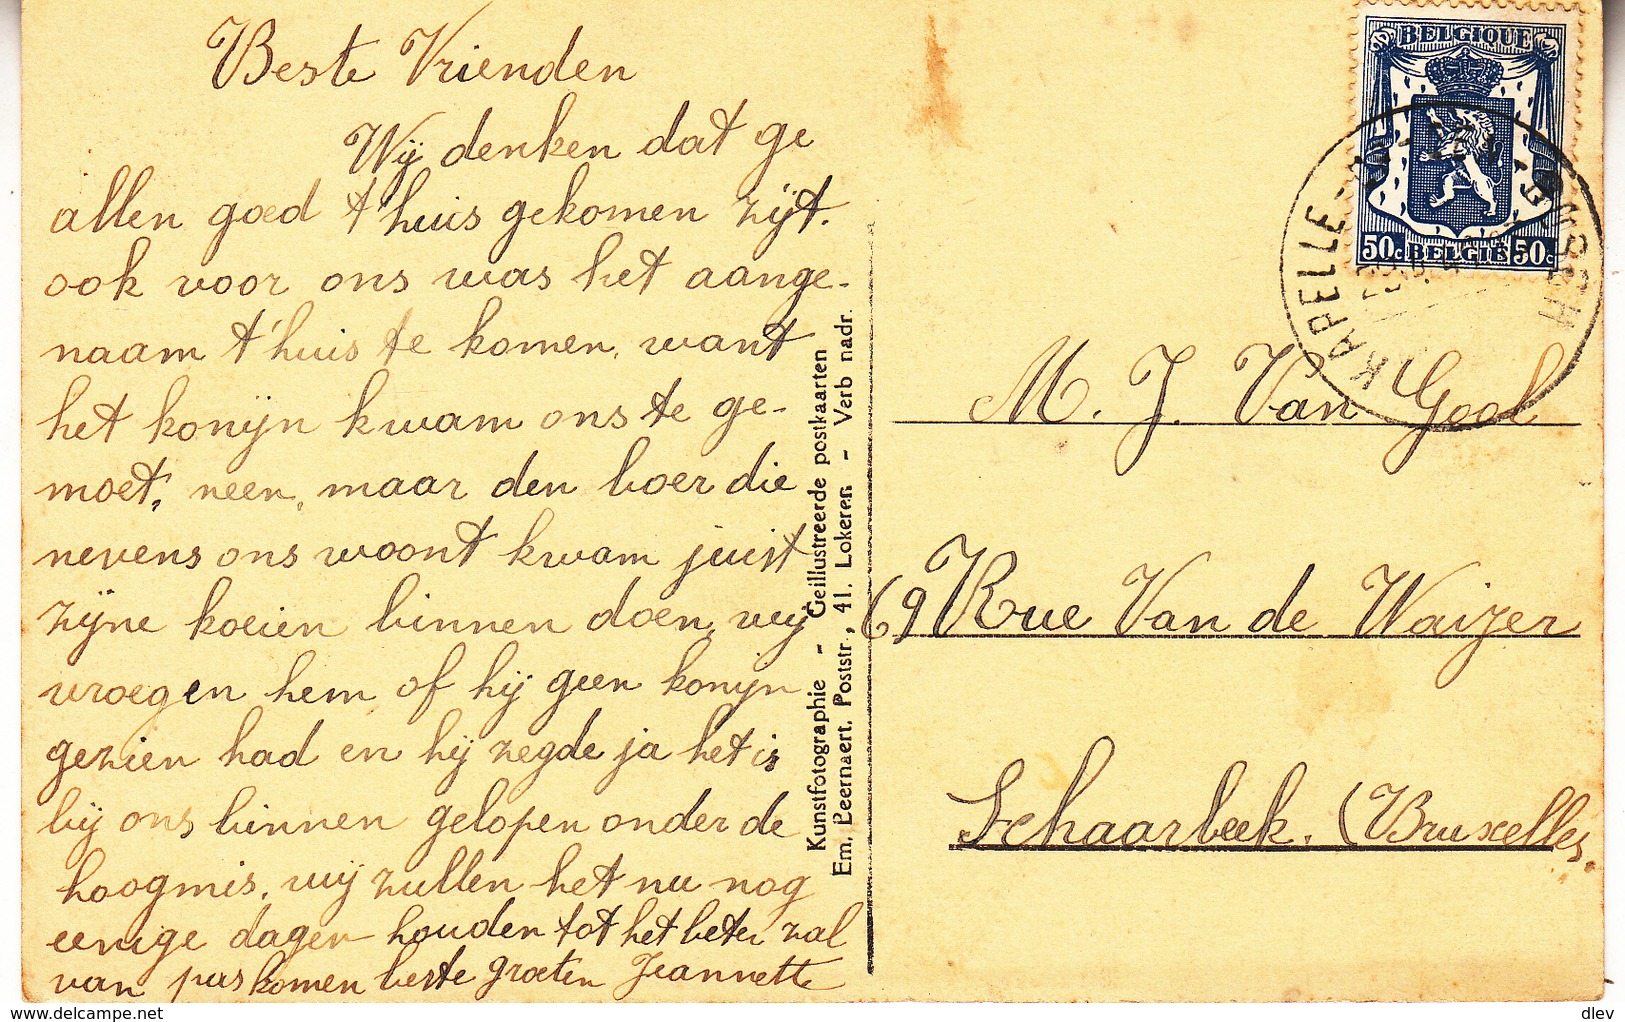 Beste Vrienden
Wij denken dat ge
allen goed t'huis gekomen zijt.
ook voor ons was het aange-
naam t'huis te komen, want
het konijn kwam ons te ge-
moet, neen, maar den boer die
nevens ons woont kwam juist
zijne koeien binnen doen, wij
vroegen hem of hij geen konijn
gezien had en hij zegde ja het is
bij ons binnen gelopen onder de
hoogmis. wij zullen het nu nog
eenige dagen houden tot het beter zal
van pas komen beste groeten Jeannette
Kunstfotographie - Geillustreerde postkaarten
Em. Beernaert, Poststr, 41. Lokeren - Verb nadr.
BELGIQUE
50c BELGIË 50c
KAPELLE
M. J. Van Gool
69 Rue Van de Waijer
Schaarbeek. (Bruxelles.
www.delcampe.net
dlev